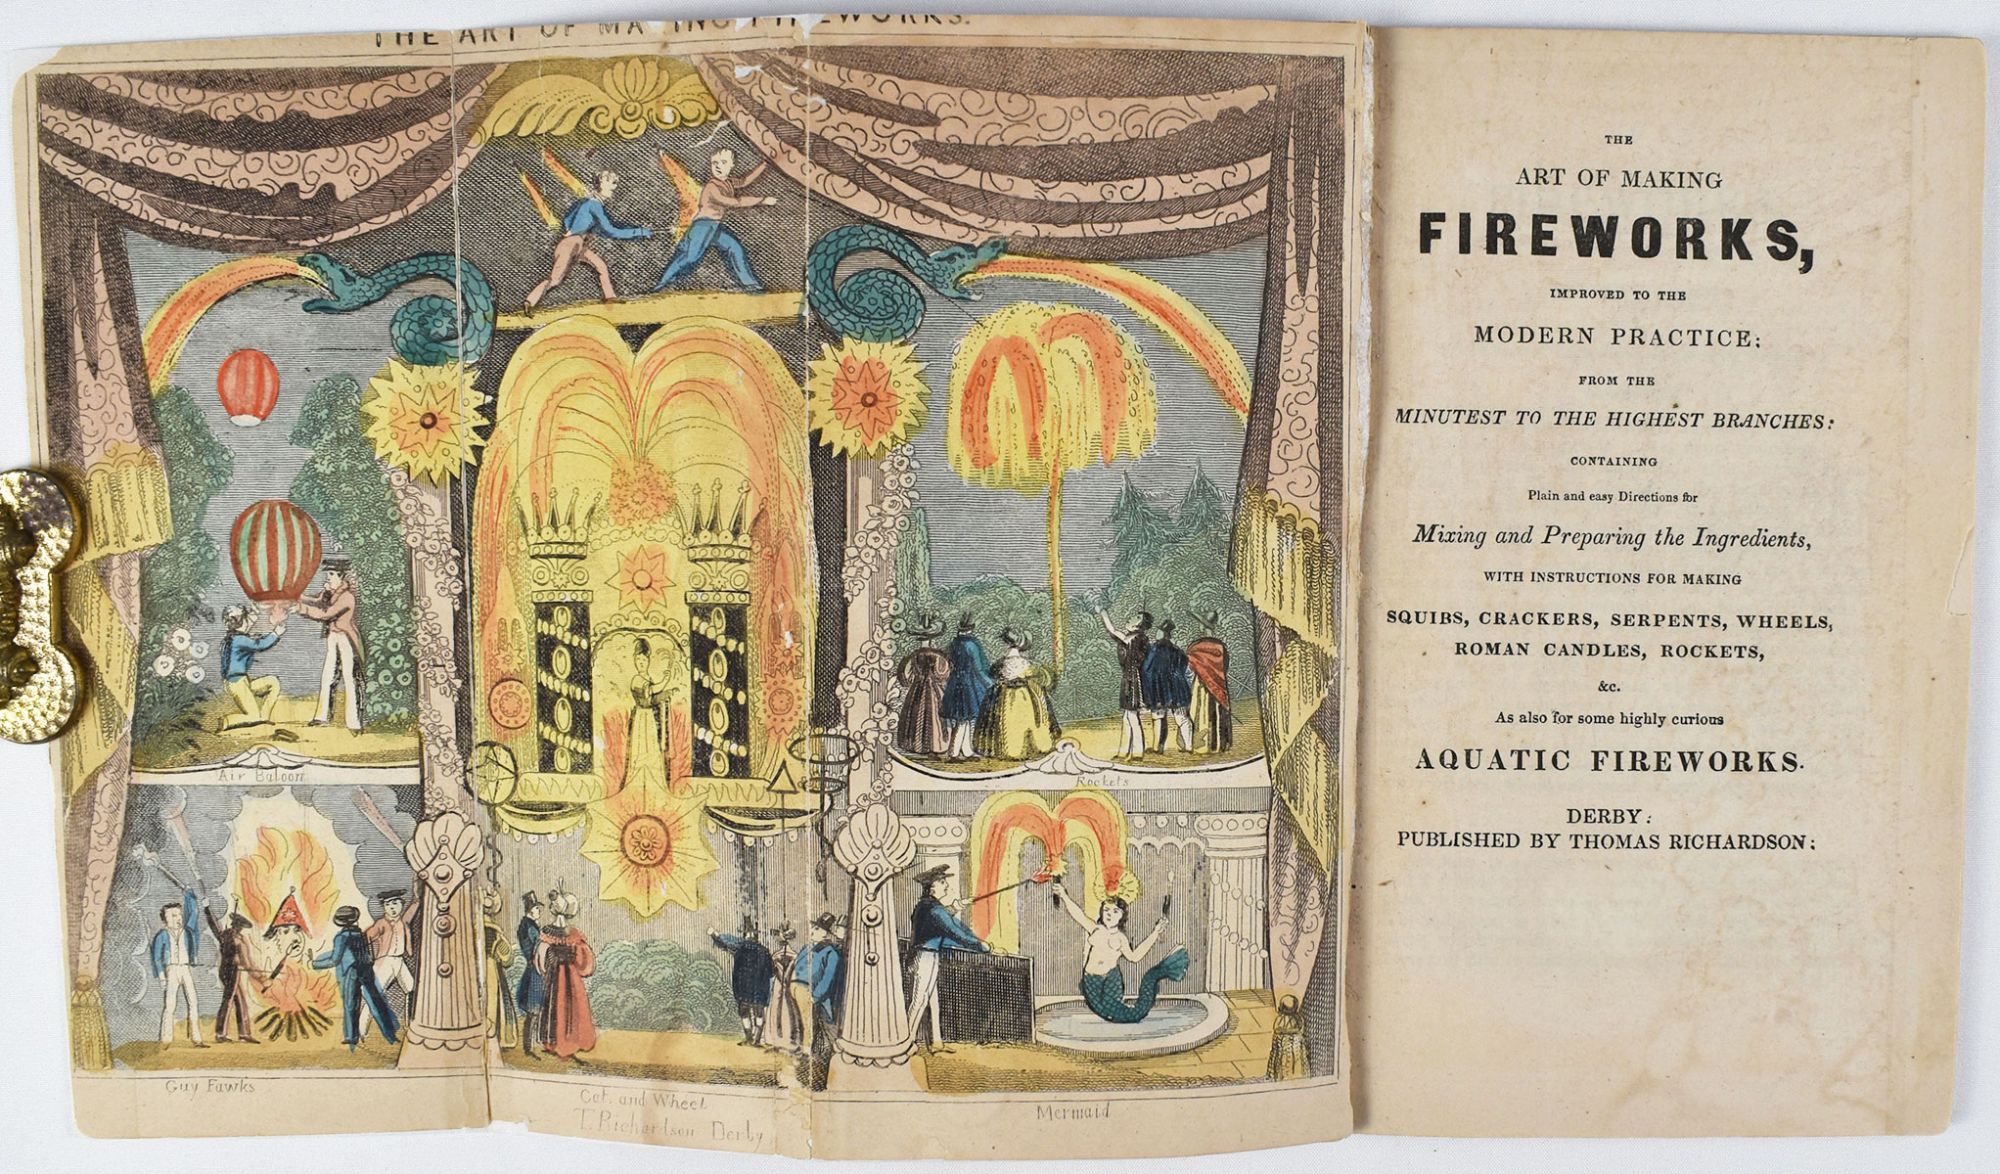 THE ART OF MA ING FIREWORKS.
Air Baloon
Rockets
Guy Fawks
Cat. and Wheel
T. Richardson Derby
Mermaid
THE
ART OF MAKING
FIREWORKS,
IMPROVED TO THE
MODERN PRACTICE:
FROM THE
MINUTEST TO THE HIGHEST BRANCHES:
CONTAINING
Plain and easy Directions for
Mixing and Preparing the Ingredients,
WITH INSTRUCTIONS FOR MAKING
SQUIBS, CRACKERS, SERPENTS, WHEELS,
ROMAN CANDLES, ROCKETS,
&c.
As also for some highly curious
AQUATIC FIREWORKS.
DERBY:
PUBLISHED BY THOMAS RICHARDSON: